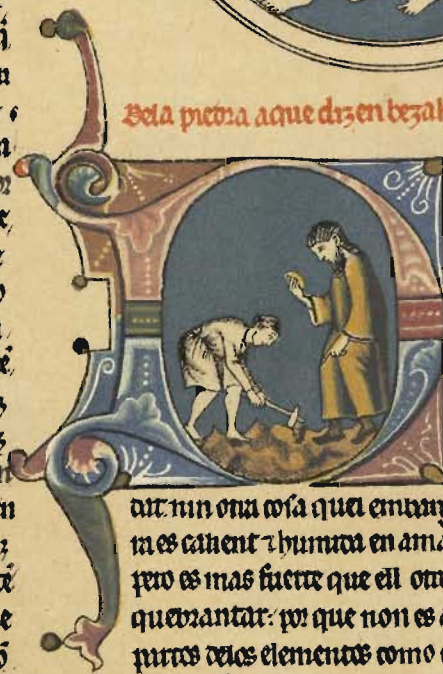 Dela piedra aque dizen bezah
dat. nin otra cosa quel embar
ra es calient ⁊ humida en ama
pero es mas fuerte que ell otra
quebrantar: por que non es
partes delos elementos como